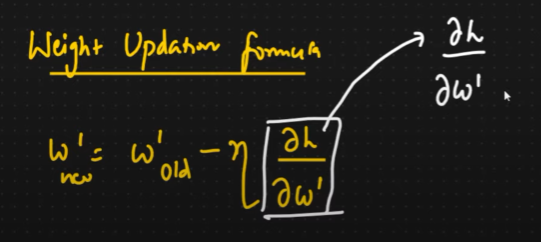 Weight Updation formula
∂L
∂w'
w'new = w'old - η ∂L
∂w'